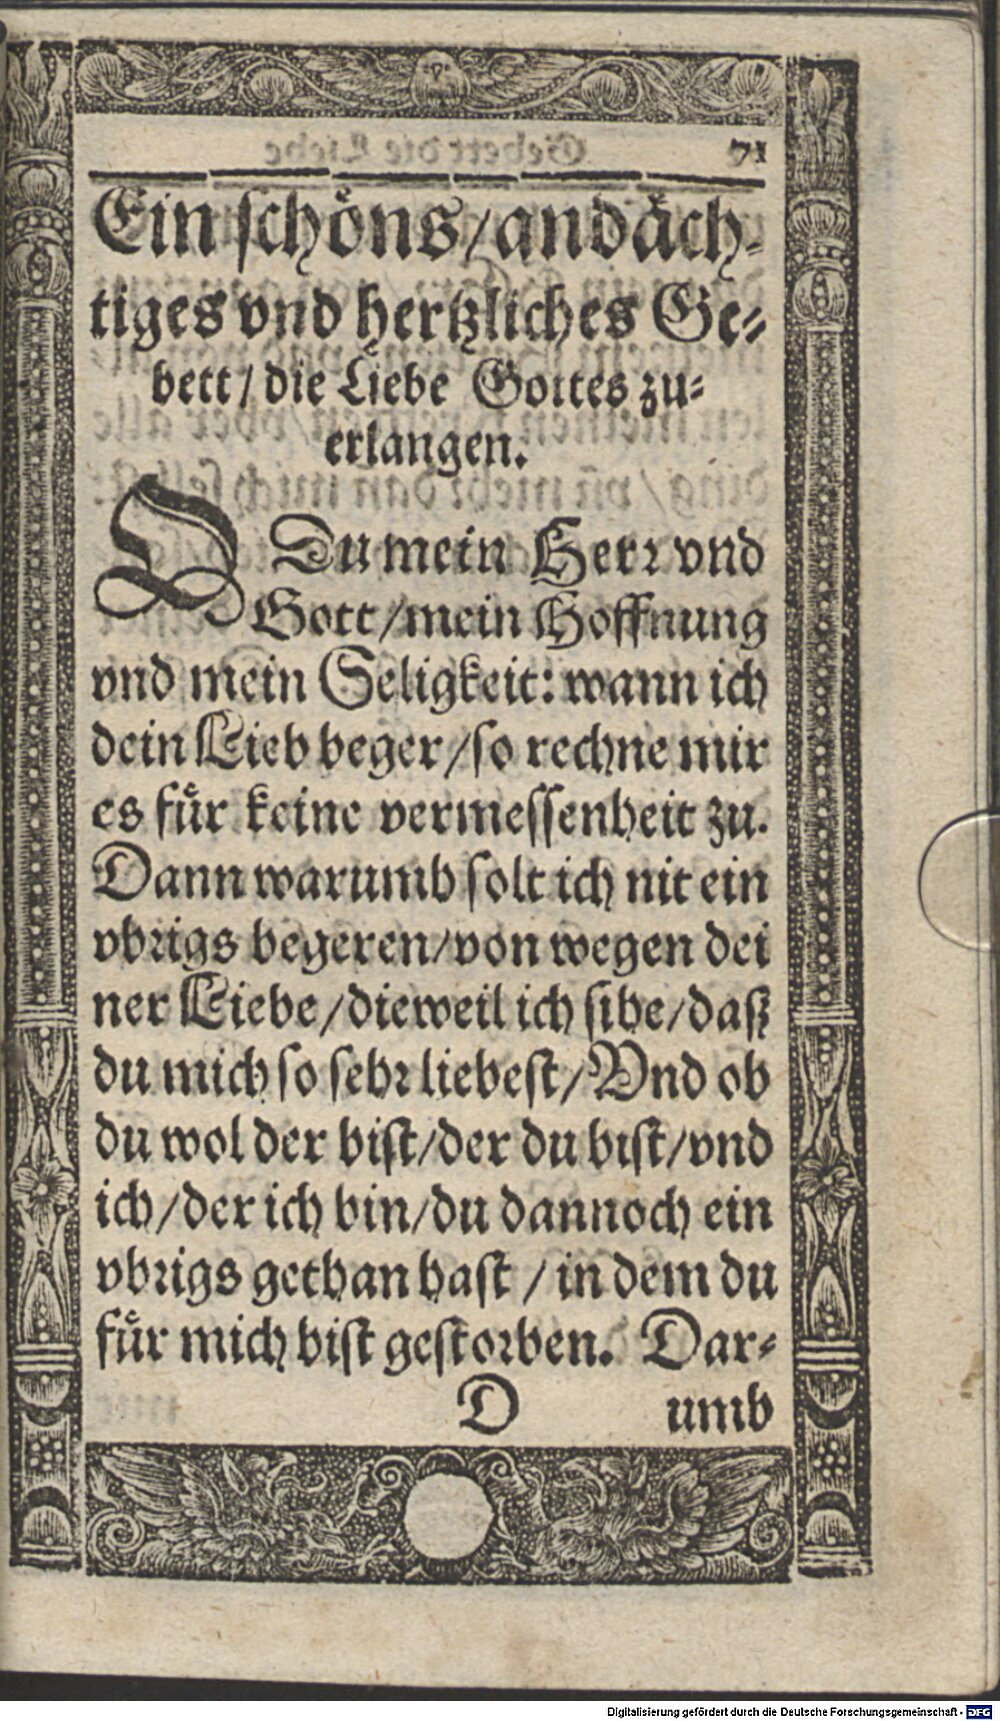 71
Ein schöns/andäch-
tiges vnd hertzliches Ge-
bett/die Liebe Gottes zu-
erlangen.
O Du mein Herr vnd
Gott/mein Hoffnung
vnd mein Seligkeit: wann ich
dein Lieb beger/so rechne mir
es für keine vermessenheit zu.
Dann warumb solt ich nit ein
vbrigs begeren/von wegen dei
ner Liebe/dieweil ich sihe/daß
du mich so sehr liebest/Vnd ob
du wol der bist/der du bist/vnd
ich/der ich bin/du dannoch ein
vbrigs gethan hast/in dem du
für mich bist gestorben. Dar-
D umb
Digitalisierung gefördert durch die Deutsche Forschungsgemeinschaft - DFG